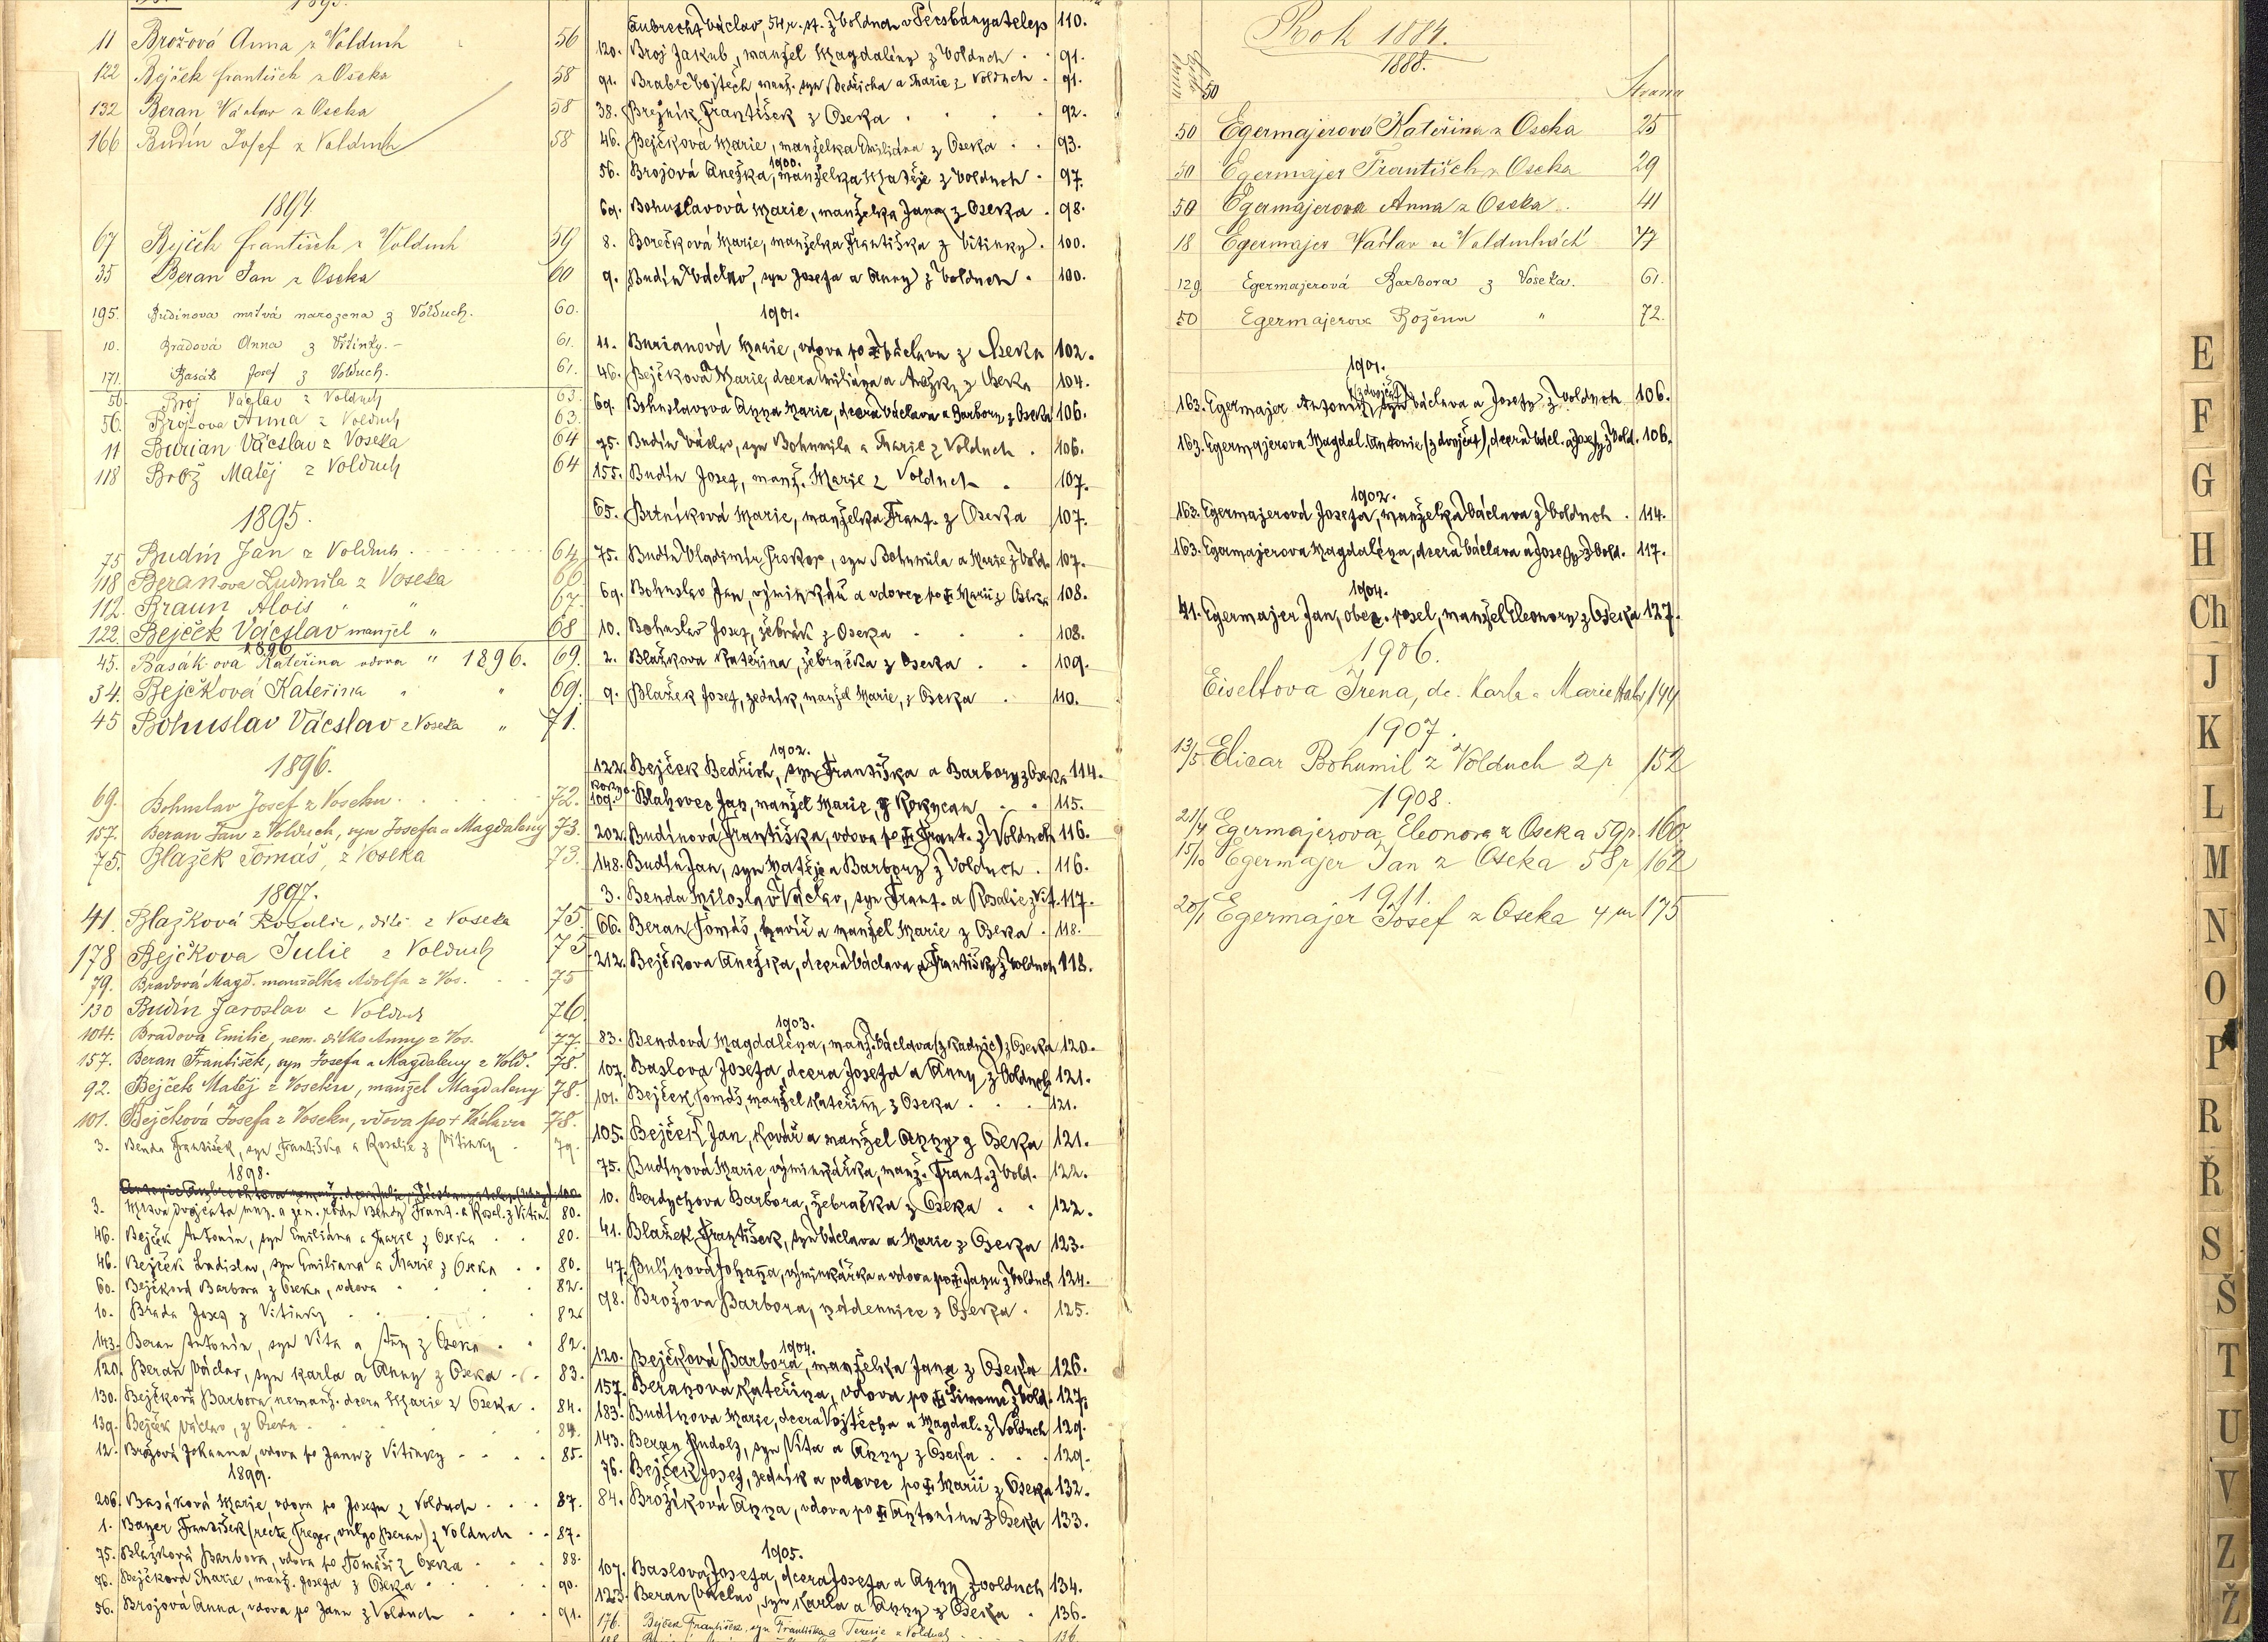 1893.
11 Brožová Anna z Volduch 56
122 Bejček František z Oseka 58
132 Beran Václav z Oseka 58
166 Budín Josef z Volduch 58
1894.
67 Bejček František z Volduch 59
35 Beran Jan z Oseka 60
195. Budínova mrtvá narozena z Volduch. 60.
10. Bradová Anna z Vitinky. 61.
171. Basák Josef z Volduch. 61.
56. Broj Václav z Volduch 63.
56. Brojova Anna z Volduch 63.
11 Burian Vácslav z Voseka 64
118 Brož Matěj z Volduch 64
1895.
75 Budín Jan z Volduch 64
118 Beranova Ludmila z Voseka 66
112. Braun Alois " " 67.
122 Bejček Vácslav manžel " 68
1896
45. Basák ova Kateřina vdova " 1896. 69.
34. Bejčková Kateřina " " 69.
45 Bohuslav Vácslav z Voseka " 71.
1896.
69. Bohuslav Josef z Voseku. 72.
157. Beran Jan z Volduch, syn Josefa a Magdaleny 73.
75. Blažek Tomáš, z Voseka 73.
1897.
41. Blažková Rosalie, dítě z Voseka 75.
178 Bejčkova Julie z Volduch 75
79. Bradová Magd. manželka Adolfa z Vos. 75
130 Budín Jaroslav z Volduch 76.
104. Bradova Emilie, nem. dítko Anny z Vos. 77.
157. Beran František, syn Josefa a Magdaleny z Vold. 78.
92. Bejček Matěj z Voseku, manžel Magdaleny 78.
101. Bejčková Josefa z Voseku, vdova po + Václavu 78.
3. Benda František, syn Františka a Rosalie z Vitinky 79.
1898.
3. Mrtvá dvojčata muž. a žen. rodu Bendy Frant. a Rosal. z Vitin. 80.
46. Bejček Antonín, syn Emiliána a Marie z Oseka 80.
46. Bejček Ladislav, syn Emiliana a Marie z Oseka 80.
60. Bejčková Barbora z Oseka, vdova 82.
10. Brada Josef z Vitinky 82.
143. Beran Antonín, syn Víta a Anny z Oseka 82.
120. Beran Václav, syn Karla a Anny z Oseka 83.
130. Bejčková Barbora, nemanž. dcera Marie z Oseka 84.
139. Bejček Václav, z Oseka 84.
12. Brožová Johanna, vdova po Janu z Vitinky 85.
1899.
206. Basáková Marie, vdova po Josefu z Volduch 87.
1. Bayer František (recte Treger, vulgo Beran) z Volduch 87.
75. Blažková Barbora, vdova po Tomáši z Oseka 88.
76. Bejčková Marie, manž. Josefa z Oseka 90.
56. Brojová Anna, vdova po Janu z Volduch 91.
Aubrecht Václav, 54 r. st. z Volduch v Pécsbányatelep 110.
120. Broj Jakub, manžel Magdalény z Volduch 91.
91. Brabec Vojtěch, manž. syn Bedřicha a Marie z Volduch 91.
38. Brejník František z Oseka 92.
46. Bejčková Marie, manželka Emiliána z Oseka 93.
1900.
56. Brojová Anežka, manželka Matěje z Volduch 97.
69. Bohuslavová Marie, manželka Jana z Oseka 98.
8. Borečková Marie, manželka Františka z Vitinky. 100.
9. Budín Václav, syn Josefa a Anny z Volduch. 100.
1901.
11. Burianová Marie, vdova po + Václavu z Oseka 102.
46. Bejčková Marie, dcera Emiliána a Anežky z Oseka 104.
69. Bohuslavova Anna Marie, dcera Václava a Barbory z Oseka 106.
75. Budín Václav, syn Bohumila a Marie z Volduch 106.
155. Budín Josef, manž. Marie z Volduch 107.
65. Brtníková Marie, manželka Frant. z Oseka 107.
75. Budín Vladimír Prokop, syn Bohumila a Marie z Vold. 107.
69. Bohuslav Jan, výminkář a vdovec po + Marii z Oseka 108.
10. Bohuslav Josef, žebrák z Oseka 108.
2. Blažkova Kateřina, žebračka z Oseka 109.
9. Blažek Josef, zedník, manžel Marie, z Oseka 110.
1902.
122. Bejček Bedřich, syn Františka a Barbory z Oseka 114.
Rokyc. 109. Blahovec Jan, manžel Marie, z Rokycan 115.
202. Budínová Františka, vdova po + Frant. z Volduch 116.
148. Budín Jan, syn Matěje a Barbory z Volduch. 116.
3. Benda Miloslav Václav, syn Frant. a Rosalie z Vit. 117.
66. Beran Tomáš, havíř a manžel Marie z Oseka 118.
212. Bejčkova Anežka, dcera Václava a Františky z Volduch 118.
1903.
83. Bendová Magdaléna, manž. Václava (z Radnic) z Oseka 120.
107. Baslova Josefa, dcera Josefa a Anny z Volduch 121.
101. Bejček Tomáš, manžel Kateřiny z Oseka 121.
105. Bejček Jan, kovář a manžel Anny z Oseka 121.
75. Budínová Marie, výminkářka, manž. Frant. z Vold. 122.
10. Berdychova Barbora, žebračka z Oseka 122.
41. Blažek František, syn Václava a Marie z Oseka 123.
47. Bulínová Johana, výminkářka a vdova po + Janu z Volduch 124.
98. Brožova Barbora, nádennice z Oseka. 125.
1904.
120. Bejčková Barbora, manželka Jana z Oseka 126.
157. Beranova Kateřina, vdova po + Šimonu z Vold. 127.
183. Budínova Marie, dcera Vojtěcha a Magdal. z Volduch 129.
143. Beran Rudolf, syn Víta a Anny z Oseka 129.
76. Bejček Josef, zedník a vdovec po + Marii z Oseka 132.
84. Brožíková Anna, vdova po + Antonínu z Oseka 133.
1905.
107. Baslova Josefa, dcera Josefa a Anny z Volduch 134.
123. Beran Václav, syn Karla a Anny z Oseka 136.
176. Bejček František, syn Františka a Terezie z Volduch 136.
Rok 1884.
1888.
Strana
50 Egermajerová Kateřina z Oseka 25
50 Egermajer František z Oseka 29
50 Egermajerova Anna z Oseka 41
18 Egermajer Václav ve Volduchách 47
129 Egermajerová Barbora z Voseka. 61.
50 Egermajerova Božena " 72.
1901.
(z dvojčat)
163. Egermajer Antonín, syn Václava a Josefy z Volduch 106.
163. Egermajerova Magdal. Antonie (z dvojčat), dcera Václ. a Josefy z Vold. 106.
1902.
163. Egermajerová Josefa, manželka Václava z Volduch 114.
163. Egermajerova Magdaléna, dcera Václava a Josefy z Vold. 117.
1904.
41. Egermajer Jan, obec. posel, manžel Eleonory z Oseka 127.
1906.
Eiseltova Irena, dc. Karla a Marie 144
1907.
13/5 Elicar Bohumil z Volduch 2 r 152
1908.
21/4 Egermajerova Eleonora z Oseka 59 r. 160.
15/10 Egermajer Jan z Oseka 58 r 162
1911.
20/1 Egermajer Josef z Oseka 4 m 175
E
F
G
H
Ch
J
K
L
M
N
O
P
R
Ř
S
Š
T
U
V
Z
Ž